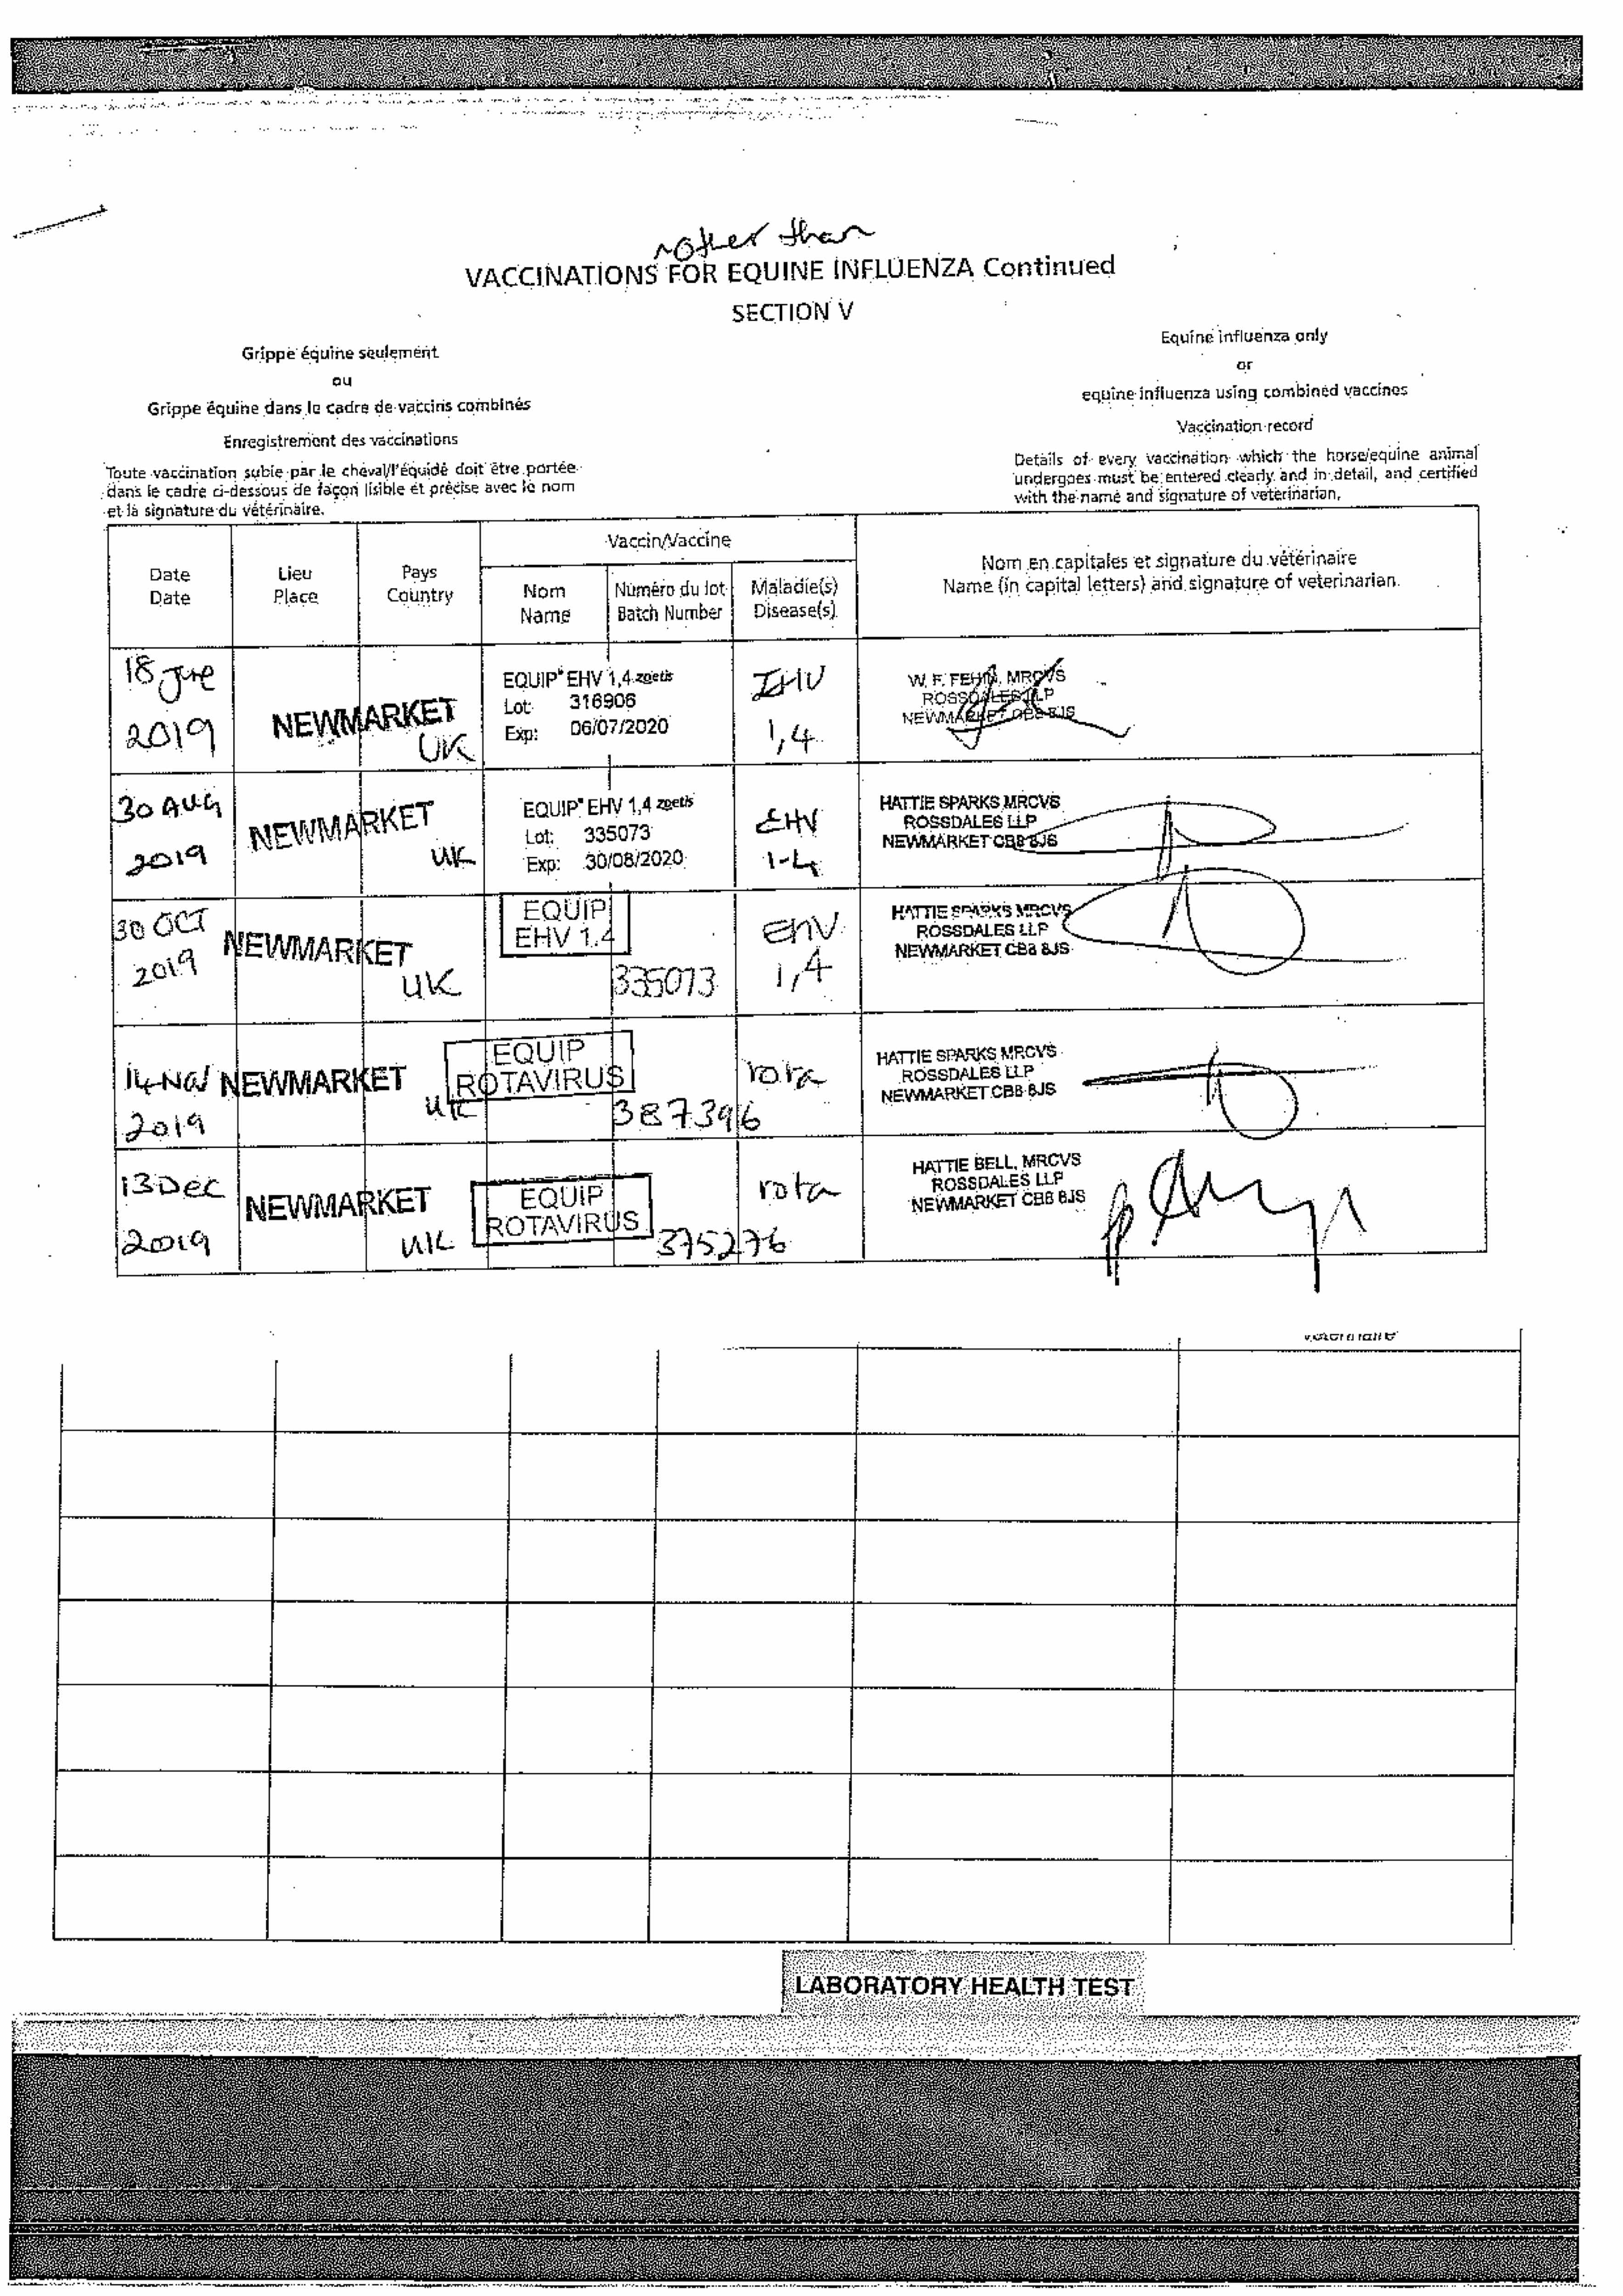 other than
VACCINATIONS FOR EQUINE INFLUENZA Continued
SECTION V
Grippe équine seulement
ou
Grippe équine dans le cadre de vaccins combinés
Enregistrement des vaccinations
Toute vaccination subie par le cheval/l'équidé doit être portée
dans le cadre ci-dessous de façon lisible et précise avec le nom
et la signature du vétérinaire.
Equine influenza only
or
equine influenza using combined vaccines
Vaccination record
Details of every vaccination which the horse/equine animal
undergoes must be entered clearly and in detail, and certified
with the name and signature of veterinarian,
Date
Date
Lieu
Place
Pays
Country
Vaccin/Vaccine
Nom
Name
Numéro du lot
Batch Number
Maladie(s)
Disease(s)
Nom en capitales et signature du vétérinaire
Name (in capital letters) and signature of veterinarian.
18
2019
NEWMARKET
UK
EQUIP EHV 1,4 zoetis
Lot: 316906
Exp: 06/07/2020
EHV
1,4
W. F. MRCVS
ROSSDALES LLP
NEWMARKET CB8 8JS
30 AUG
2019
NEWMARKET
UK
EQUIP EHV 1,4 zoetis
Lot: 335073
Exp: 30/08/2020
EHV
1-4
HATTIE SPARKS MRCVS
ROSSDALES LLP
NEWMARKET CB8 8JS
30 OCT
2019
NEWMARKET
UK
EQUIP
EHV 1.4
335073
EHV
1,4
HATTIE SPARKS MRCVS
ROSSDALES LLP
NEWMARKET CB8 8JS
14 Nov
2019
NEWMARKET
UK
EQUIP
ROTAVIRUS
387396
rota
HATTIE SPARKS MRCVS
ROSSDALES LLP
NEWMARKET CB8 8JS
13 Dec
2019
NEWMARKET
UK
EQUIP
ROTAVIRUS
375276
rota
HATTIE BELL, MRCVS
ROSSDALES LLP
NEWMARKET CB8 8JS
pp
LABORATORY HEALTH TEST